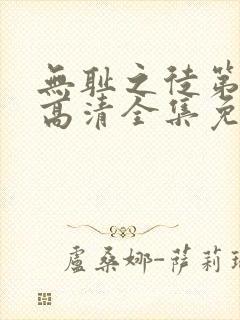 無耻之徒第
高清全集免
盧桑娜-薩莉瑞